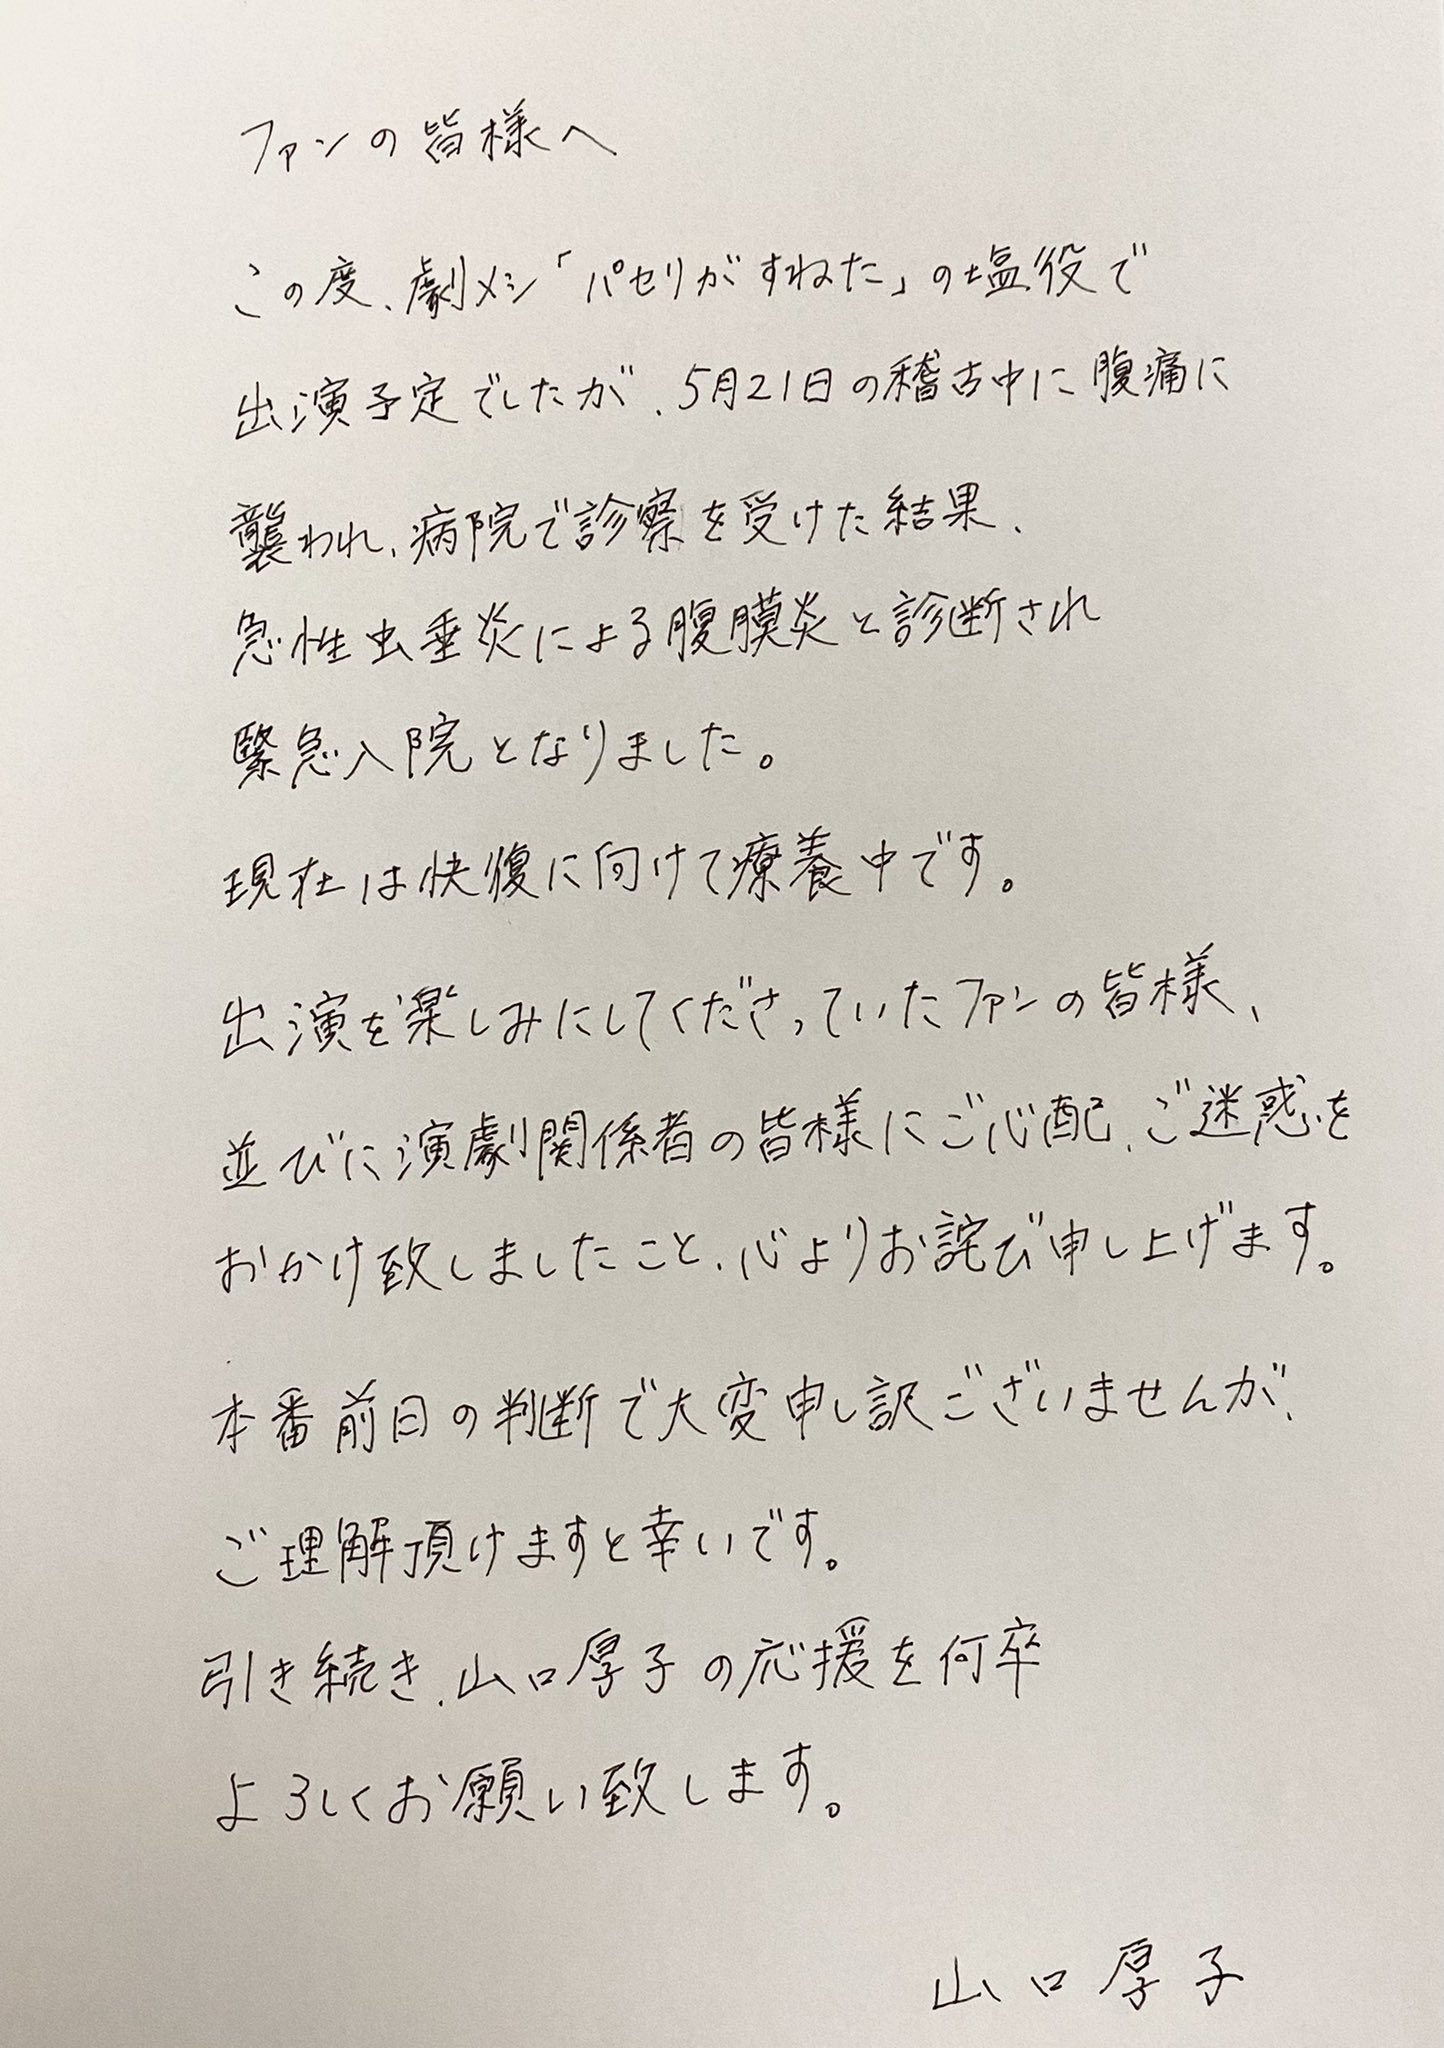 ファンの皆様へ
この度、劇メシ「パセリがすねた」の塩役で
出演予定でしたが、5月21日の稽古中に腹痛に
襲われ、病院で診察を受けた結果、
急性虫垂炎による腹膜炎と診断され
緊急入院となりました。
現在は快復に向けて療養中です。
出演を楽しみにしてくださっていたファンの皆様、
並びに演劇関係者の皆様にご心配、ご迷惑を
おかけ致しましたこと、心よりお詫び申し上げます。
本番前日の判断で大変申し訳ございませんが、
ご理解頂けますと幸いです。
引き続き、山口厚子の応援を何卒
よろしくお願い致します。
山口厚子